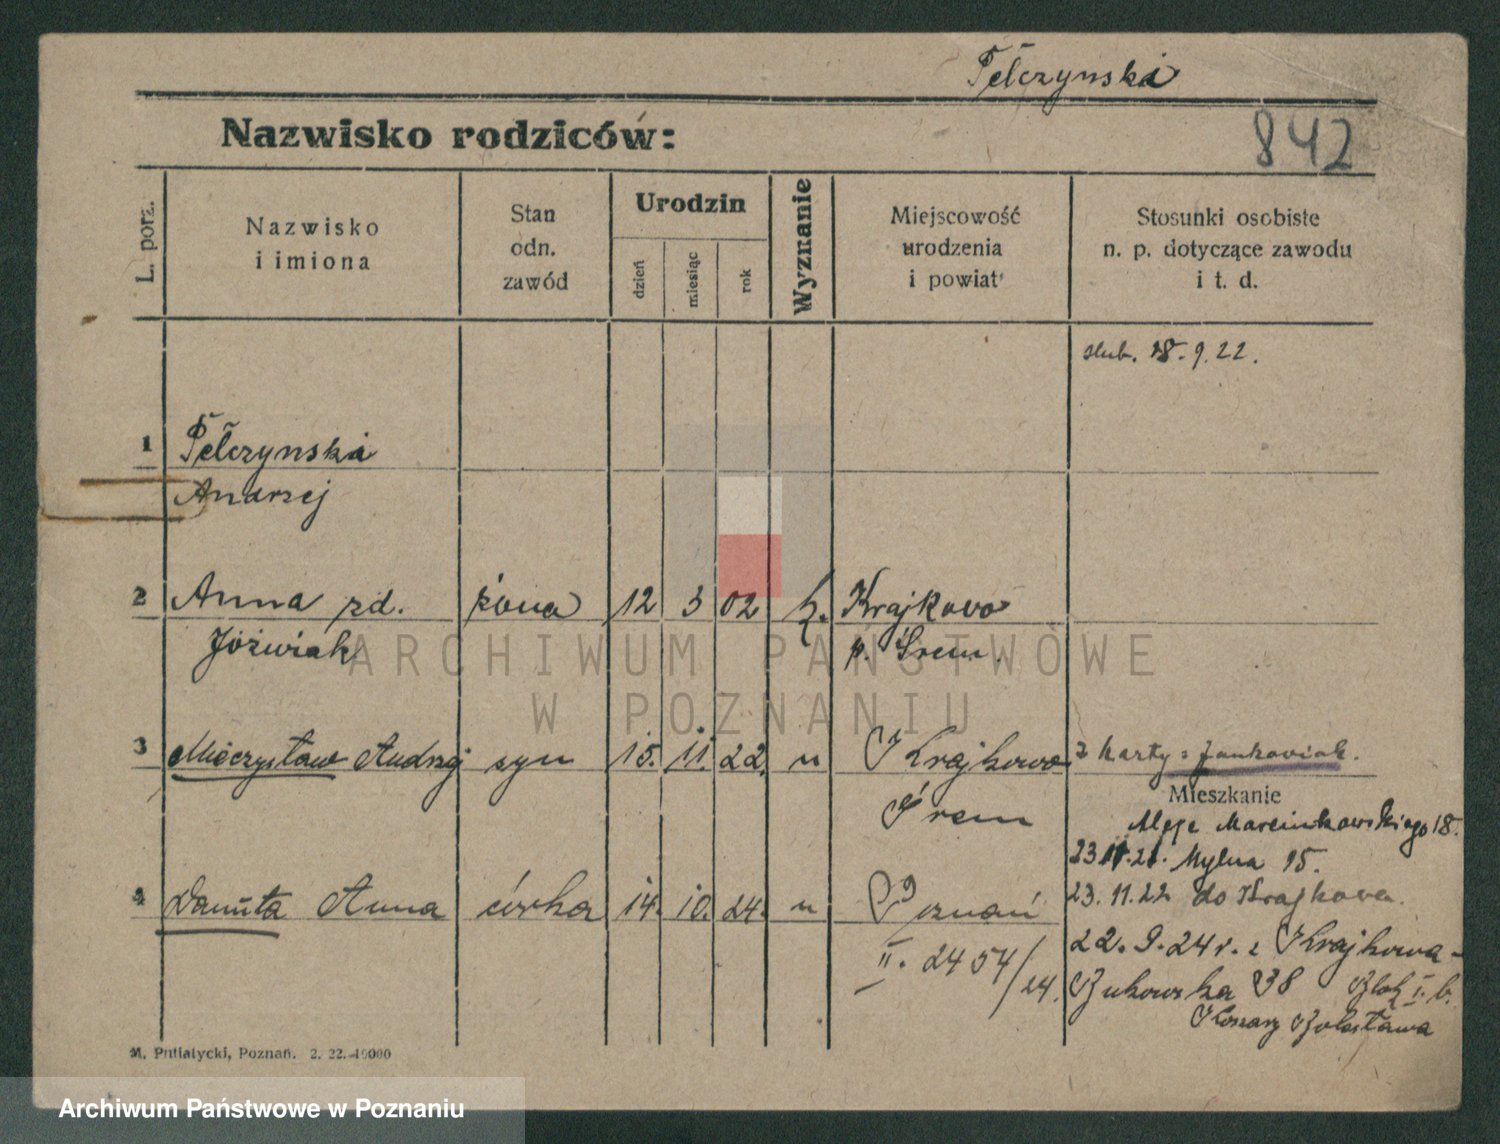 Pełczynski
Nazwisko rodziców:
842
L. porz.
Nazwisko
i imiona
Stan
odn.
zawód
Urodzin
dzień
miesiąc
rok
Wyznanie
Miejscowość
urodzenia
i powiat
Stosunki osobiste
n. p. dotyczące zawodu
i t. d.
slub. 18. 9. 22.
1 Pełczynski
Andrzej
2 Anna zd. żona 12 3 02 k. Krajkovo
Jóźwiak p. Śrem.
3 Mieczysław Andrzej syn 15. 11. 22. u Krajkowo z karty: Jankoviak.
Śrem
Mieszkanie
Aleje Marcinkowskiego 18.
23.11.21. Mylna 15.
4 Danuta Anna córka 14. 10. 24. u Poznań 23. 11. 22 do Krajkova.
II. 2454/24.
22. 9. 24 r. z Krajkowa-
Bukowska 38 Blok I. b.
Koszary Bolesława
M. Putiatycki, Poznań. 2. 22. 10000
ARCHIWUM PAŃSTWOWE
W POZNANIU
Archiwum Państwowe w Poznaniu